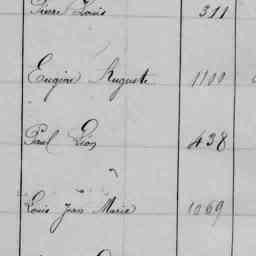 Pierre Louis 311
Eugène Auguste 1100
Paul Léon 438
Louis Jean Marie 1069